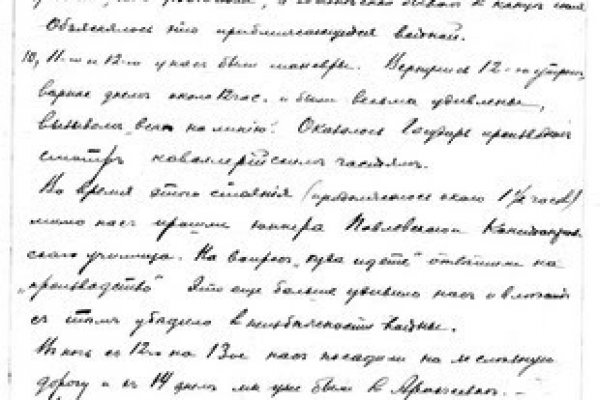 Объяснялось это приближающейся войной.
10, 11-го и 12-го у нас были маневры. Вернулись 12-го утром,
вернее днем около 12 час. и были весьма удивлены,
вызывом „всех на линию". Оказалось Государь производит
смотр кавалерийским частям.
Во время этого стояния (продолжалось около 1½ часов)
мимо нас прошли юнкера Павловского
ского училища. На вопрос „куда идете" ответили на
„производство" Это еще больше удивило нас и
с тем убедило в неизбежности войны.
В ночь с 12го на 13ое нас посадили на железную
дорогу и с 14 днем мы уже были в